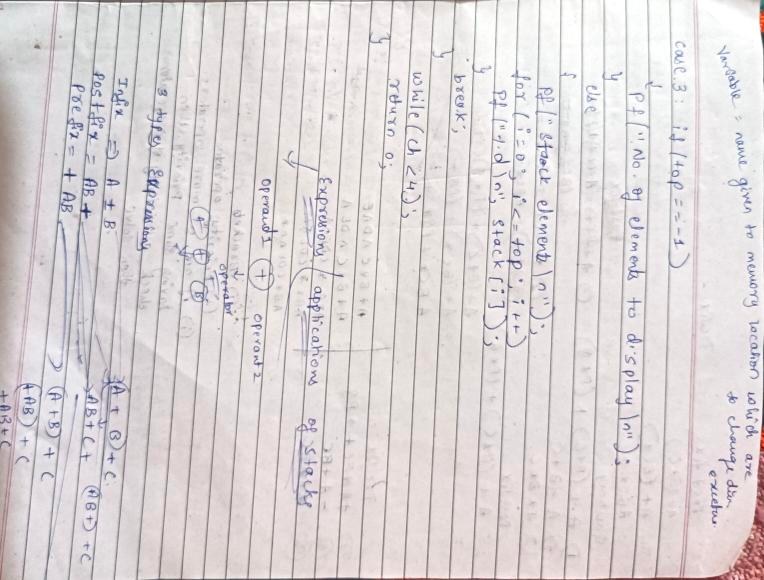 Variable = name given to memory location which are
to change dur
execution.
case 3: if (top == -1)
{
pf ("No. of elements to display \n");
}
else
{
pf ("stack elements \n");
for (i=0; i<=top; i++)
pf ("%d \n", stack [i]);
}
break;
}
while (ch < 4);
return 0;
}
Expressions / applications of stacks
operand1 + operant 2
operator
A + B
3 types Expressions
Infix => A + B.
(A + B) + C.
Postfix = AB +
AB + C + (AB+) + C
Prefix = + AB
(A+B) + C
(+AB) + C
+AB+C